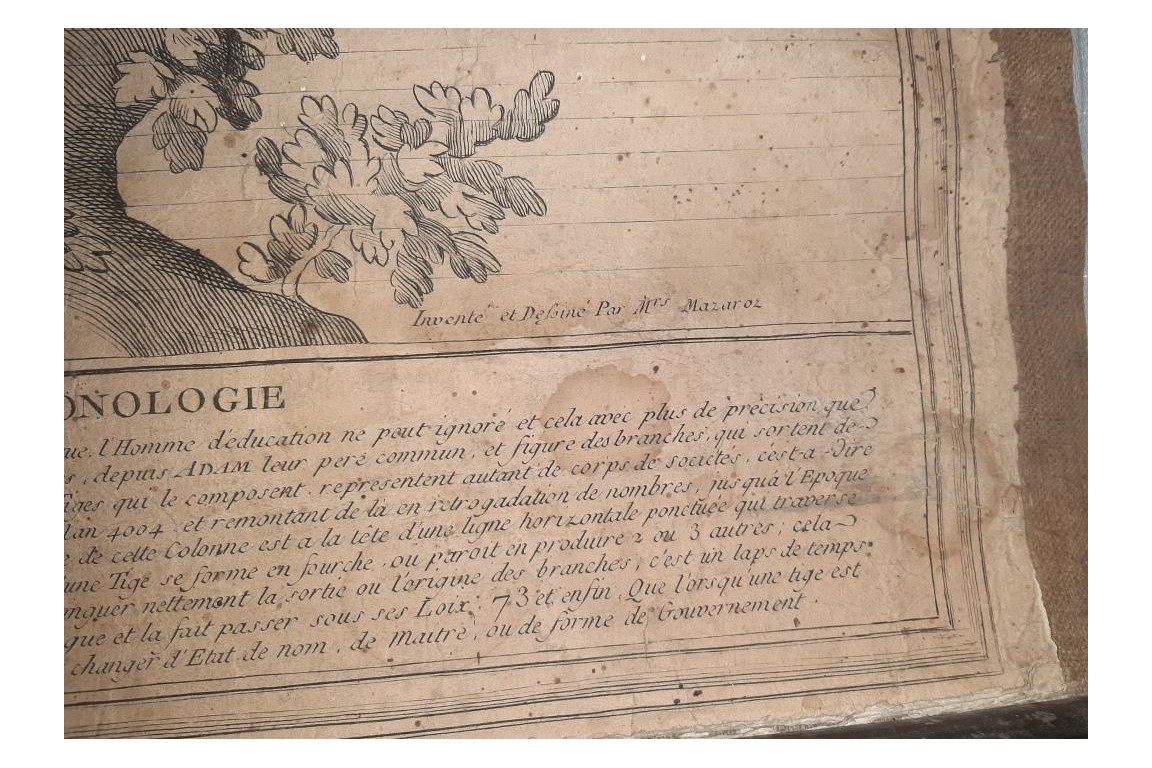 Inventé et Dessiné Par Mrs Mazaroz
ONOLOGIE
que, l'Homme d'éducation ne peut ignoré et cela avec plus de précision, que
s, depuis ADAM leur peré commun, et figure des branches, qui sortent de
Tiges qui le composent, représentent autant de corps de sociétés, c'est-a-dire
l'an 4004 et remontant de là en retrogadation de nombres, jusqu'à l'Epoque
e de cette Colonne est a la tête d'une ligne horizontale ponctuée qui traverse
d'une Tige se forme en fourche, ou paroit en produire 2 ou 3 autres; cela
nquer nettement la sortie ou l'origine des branches, c'est un laps de temps
que et la fait passer sous ses Loix; 73 et enfin, Que l'orsqu'une tige est
changer d'Etat de nom, de Maitre, ou de forme de Gouvernement.